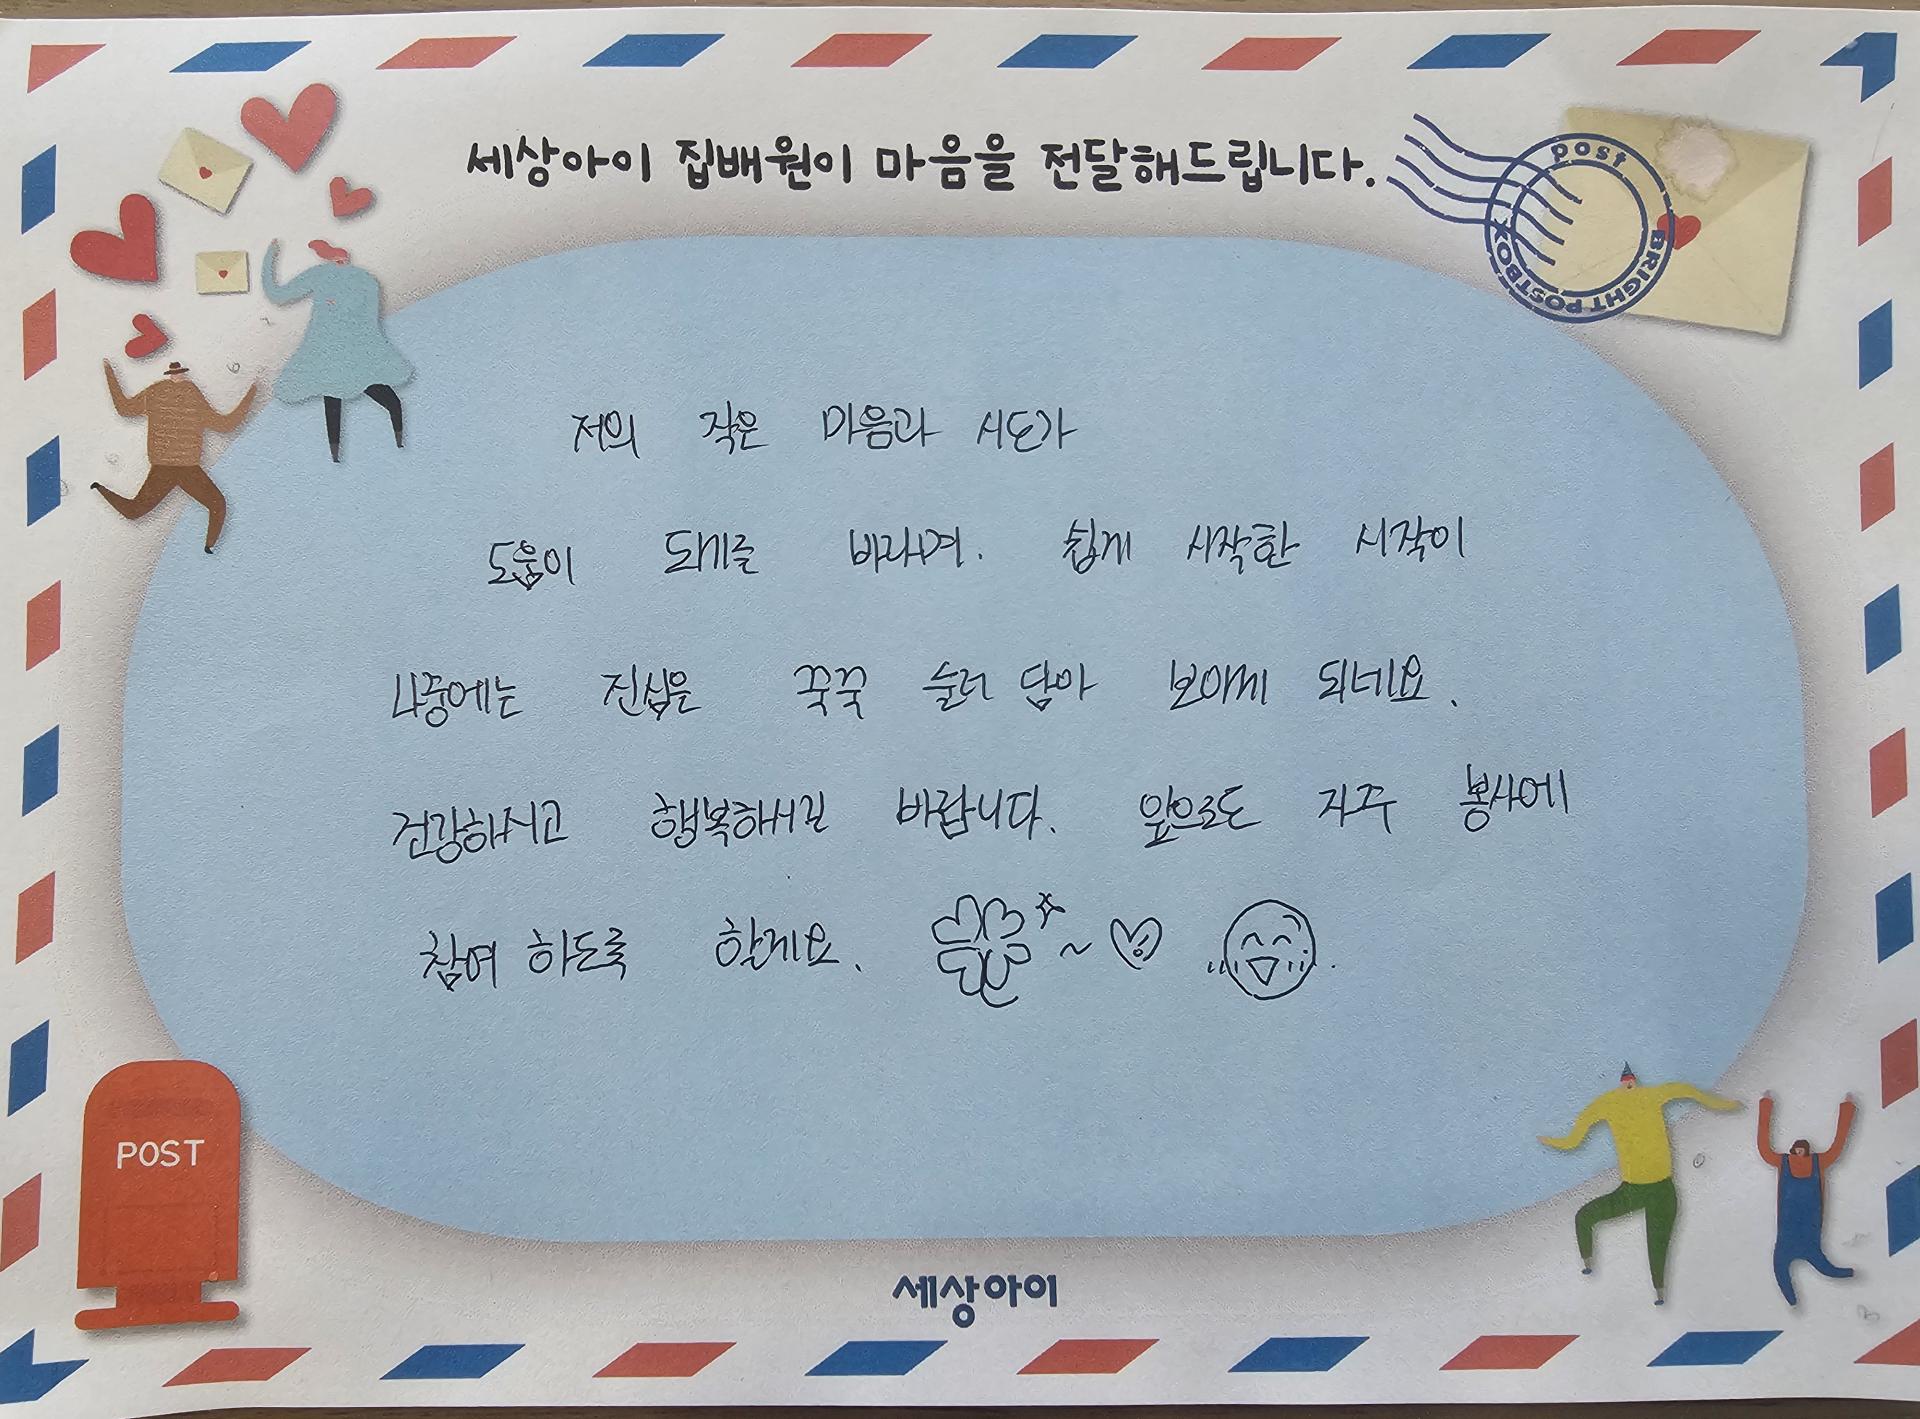 세상아이 집배원이 마음을 전달해드립니다.
post
BRIGHT POSTBOX
저의 작은 마음과 시도가
도움이 되기를 바라며. 쉽게 시작한 시작이
나중에는 진심은 꾹꾹 눌러 담아 되네요.
건강하시고 행복하시길 바랍니다. 앞으로도 자주 봉사에
참여 하도록 할게요.
POST
세상아이